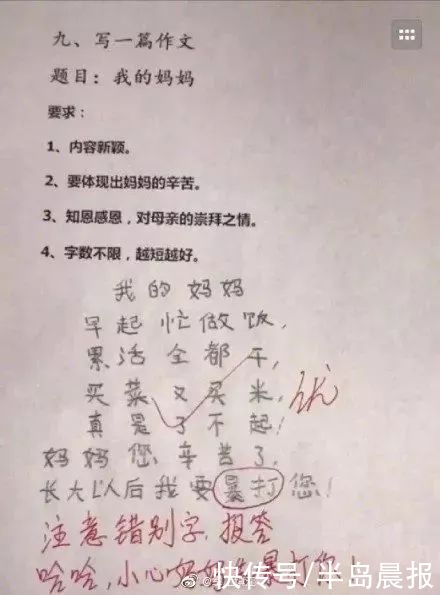 九、写一篇作文
题目：我的妈妈
要求：
1、内容新颖。
2、要体现出妈妈的辛苦。
3、知恩感恩，对母亲的崇拜之情。
4、字数不限，越短越好。
我的妈妈
早起忙做饭，
累活全都干，
买菜又买米，
优
真是了不起！
妈妈您辛苦了，
长大以后我要暴打您！
注意错别字，报答
哈哈，小心妈妈暴打你！
快传号/半岛晨报